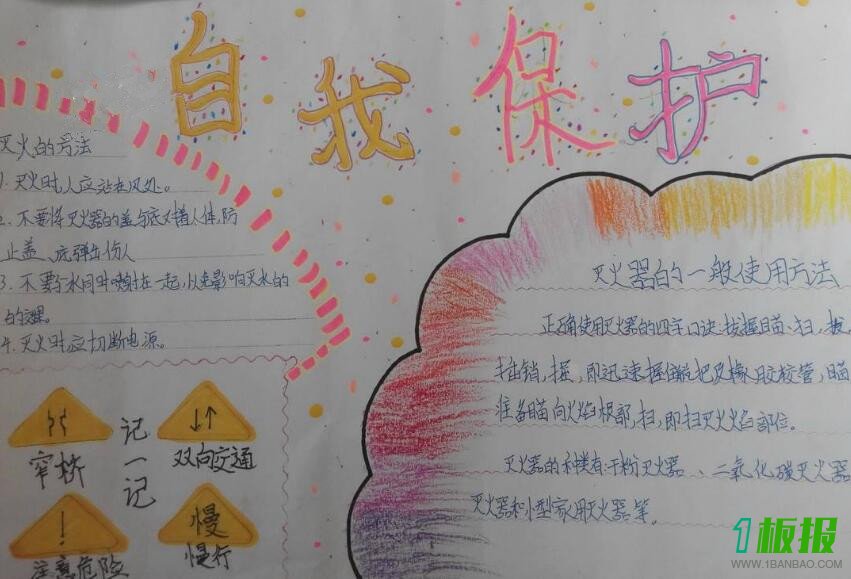 自我保护
灭火的方法
1. 灭火时,人应站在风处。
2. 不要将灭火器的盖与底对着人体,防
止盖、底弹出伤人
3. 不要与水同时喷射在一起,以免影响灭火的
的效果。
4. 灭火时应切断电源。
记一记
窄桥
双向交通
!
注意危险
慢
慢行
灭火器的一般使用方法
正确使用灭火器的四字口诀 拔握瞄、扫,拔,
销,握,即迅速握 把及橡胶软管,瞄
准备瞄向火焰根部,扫,即扫灭火焰部位。
灭火器的种类有:干粉灭火器、二氧化碳灭火器
灭火器和小型家用灭火器等。
1板报
WWW.1BANBAO.COM